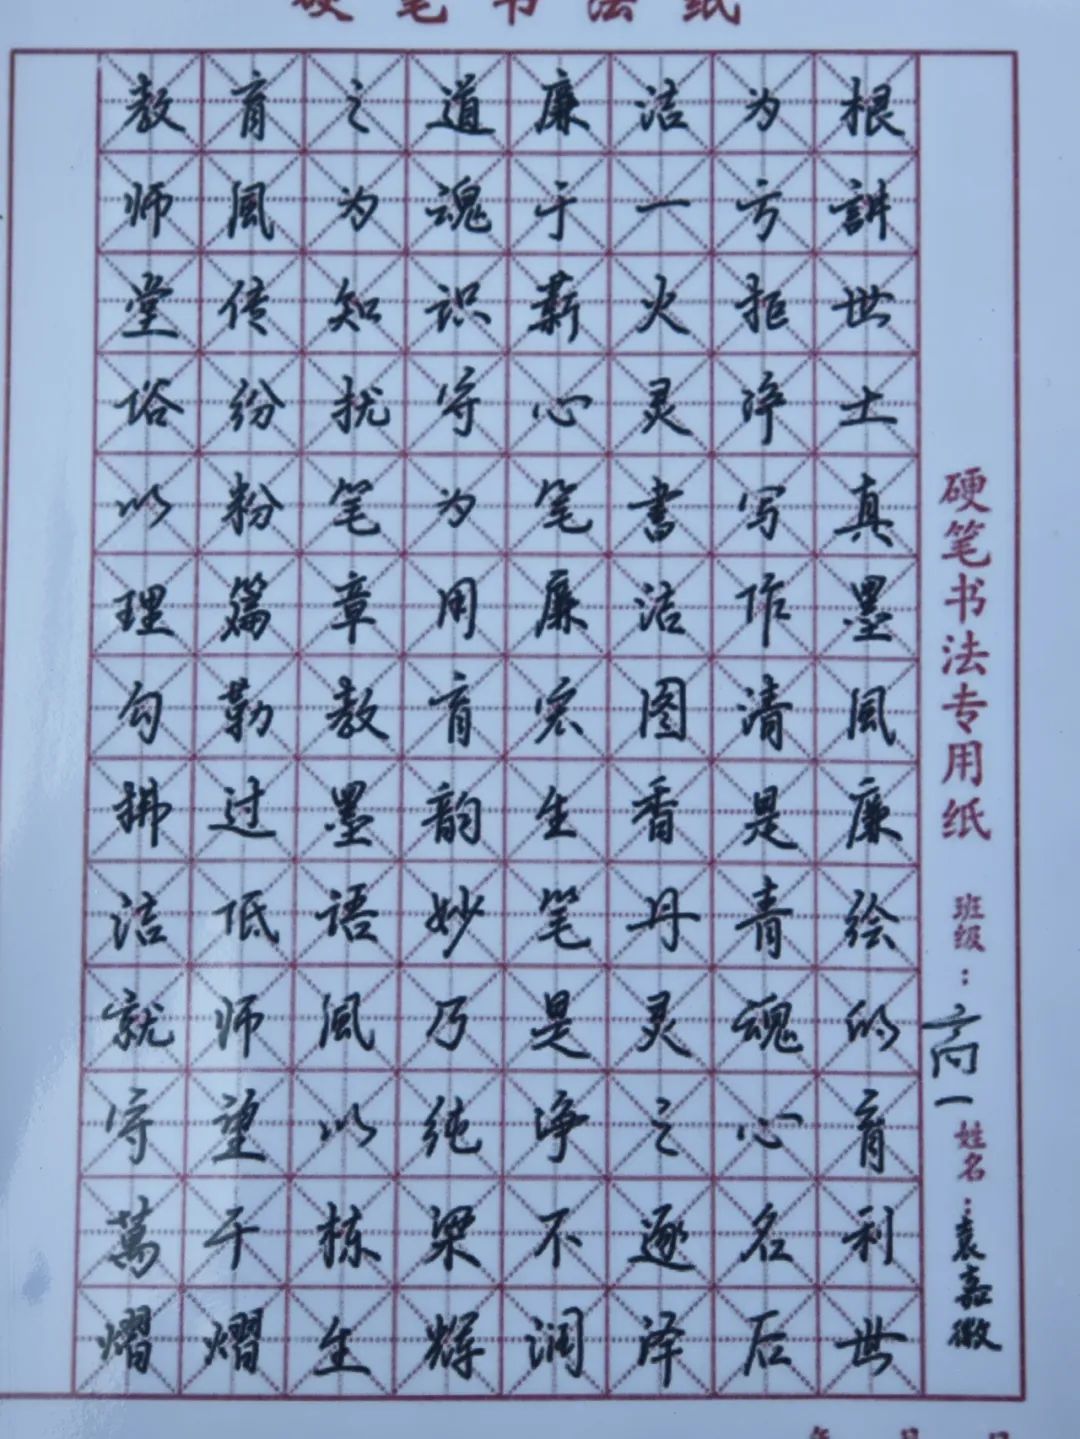 硬笔书法纸
教育之道廉洁为根
师風为魂于一方讲
堂传知识薪火拒世
俗纷扰守心灵净土
以粉笔为笔書写真
理篇章用廉洁作墨
勾勒教育宏图清風
拂过墨韵生香是廉
洁低语妙笔丹青绘
就师風乃是灵魂的
守望以纯净之心育
萬千栋梁不逐名利
熠熠生辉润泽后世
硬笔书法专用纸
班级：高一
姓名：袁嘉徽
年 月 日